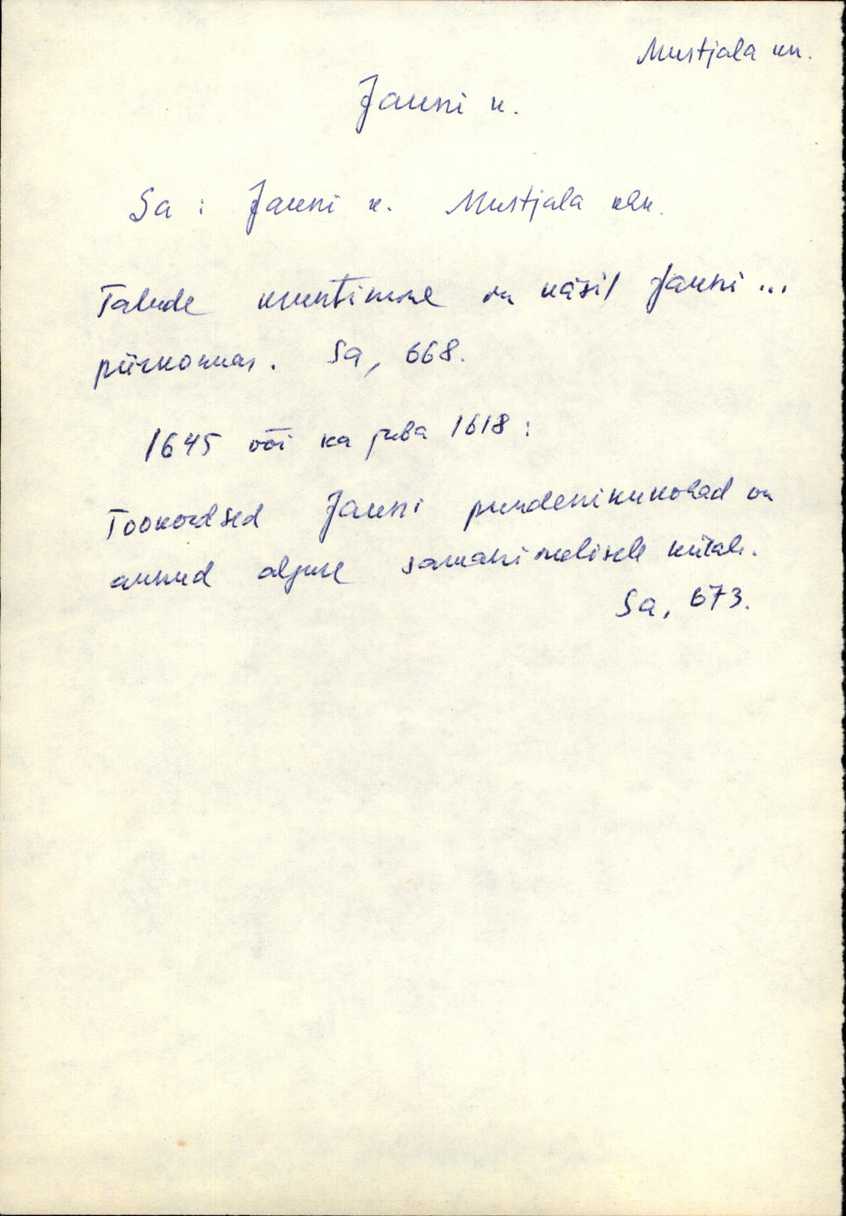 Mustjala kn.
Jauni k.
Sa : Jauni k. Mustjala khk.
Talude kruntimine on käsil Jauni ...
piirkonnas. Sa, 668.
1645 või ka juba 1618 :
Tookordsed Jauni pundenikukohad on
annud alguse samanimelisele külale.
Sa, 673.